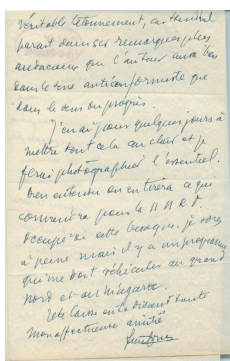 véritable étonnement, car Stendhal
paraît dans ses remarques plus
audacieux que l'auteur aussi bien
dans le sens anticonformiste que
dans le sens du progrès.
J'en ai pour quelques jours à
mettre tout cela au clair et je
ferai photographier l'essentiel.
Bien entendu on en tirera ce qui
conviendra pour la N N R F.
occupé à cette besogne, je vous
à peine mais il y a un programme
qui me doit véhiculer au grand
nord et au Niagara.
en vous disant toute
mon affectueuse amitié